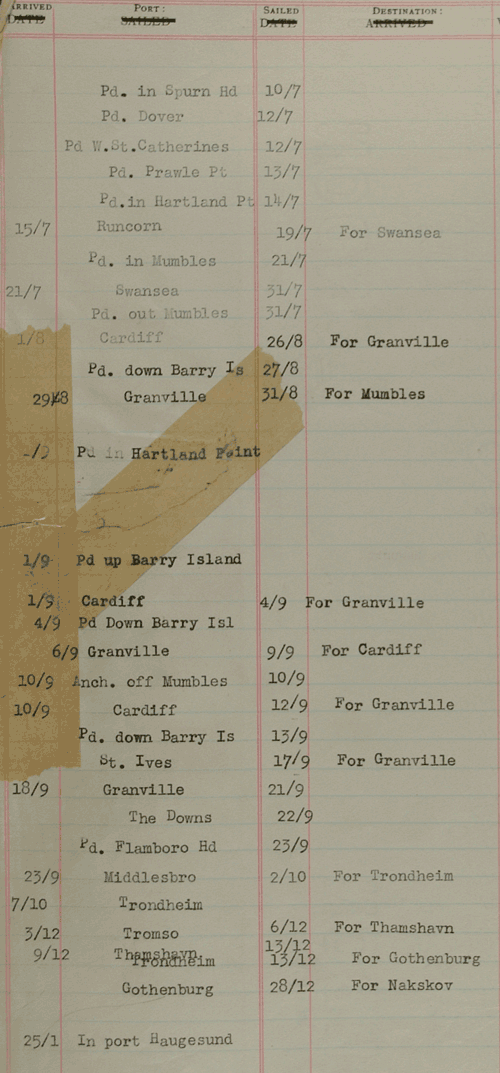 ARRIVED PORT: SAILED DESTINATION:
DATE SAILED DATE ARRIVED
Pd. in Spurn Hd 10/7
Pd. Dover 12/7
Pd W.St.Catherines 12/7
Pd. Prawle Pt 13/7
Pd.in Hartland Pt 14/7
15/7 Runcorn 19/7 For Swansea
Pd. in Mumbles 21/7
21/7 Swansea 31/7
Pd. out Mumbles 31/7
1/8 Cardiff 26/8 For Granville
Pd. down Barry Is 27/8
29/8 Granville 31/8 For Mumbles
-/9 Pd in Hartland Point
1/9 Pd up Barry Island
1/9 Cardiff 4/9 For Granville
4/9 Pd Down Barry Isl
6/9 Granville 9/9 For Cardiff
10/9 Anch. off Mumbles 10/9
10/9 Cardiff 12/9 For Granville
Pd. down Barry Is 13/9
St. Ives 17/9 For Granville
18/9 Granville 21/9
The Downs 22/9
Pd. Flamboro Hd 23/9
23/9 Middlesbro 2/10 For Trondheim
7/10 Trondheim
3/12 Tromso 6/12 For Thamshavn
9/12 Thamshavn 13/12
Trondheim 13/12 For Gothenburg
Gothenburg 28/12 For Nakskov
25/1 In port Haugesund